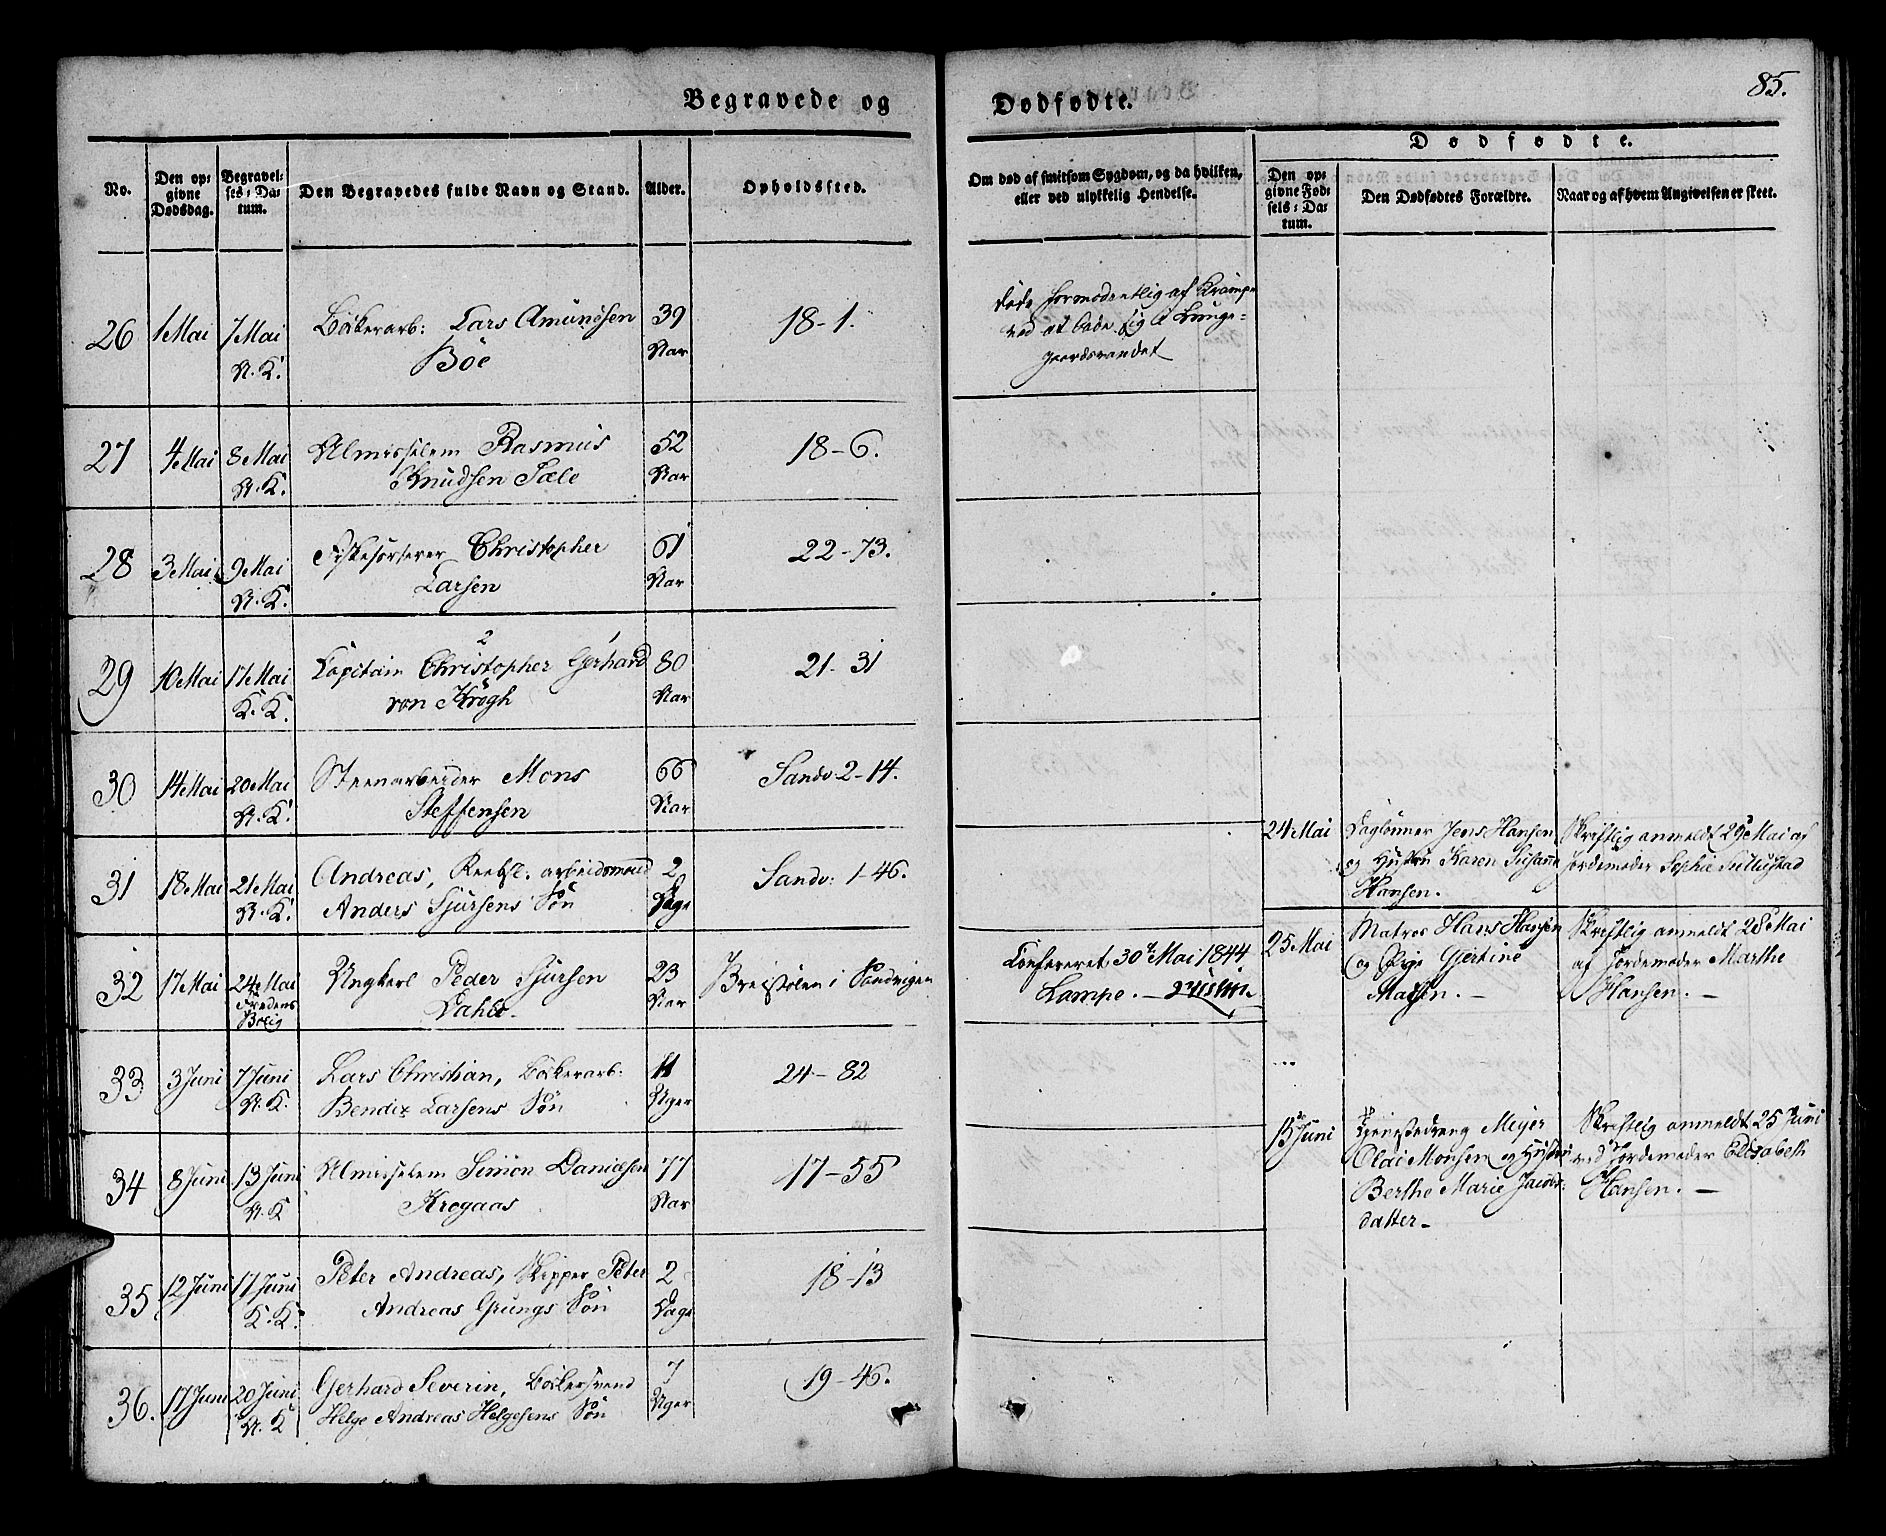 Begravede og
Dødfødte.
85.
No.
Den op-
givne
Dødsdag.
Begravel-
ses-Da-
tum.
Den Begravedes fulde Navn og Stand.
Alder.
Opholdssted.
Om død af smitsom Sygdom, og da hvilken,
eller ved ulykkelig Hendelse.
Dødfødte.
Den op-
givne Fød-
sels-Da-
tum.
Den Dødfødtes Forældre.
Naar og af hvem Angivelsen er skeet.
26 1 Mai 7 Mai Bökerarb: Lars Amundsen 39 18-1.
N. K. Böe Aar
döde formodentlig af Krampe
ved at bade sig i Lunge-
gaardsvandet
27 4 Mai 8 Mai Almisselem Rasmus 52 18-6.
N. K. Knudsen Sæle Aar
28 3 Mai 9 Mai Christopher 61 22-73.
N. K. Larsen Aar
29 10 Mai 17 Mai Capitain Christopher Gerhard 80 21-31
K. K. von Krogh Aar
30 14 Mai 20 Mai Steenarbeider Mons 66 Sandv. 2-14.
N. K. Steffensen Aar
31 18 Mai 21 Mai Andreas, Reebsl. arbeidsmand 2 Sandv: 1-46.
N. K. Anders Sjursens Sön Dage
32 17 Mai 24 Mai Ungkarl Peder Sjursen 23 i Sandvigen
Fredens Bolig Dahle. Aar
Confereret 30 Mai 1844
Lampe.
33 3 Juni 7 Juni Lars Christian, Bökerarb: 11 24-82
N. K. Bendix Larsens Sön Uger
34 8 Juni 13 Juni Almisselem Simon Danielsen 77 17-55
N. K. Krogaas Aar
35 12 Juni 17 Juni Peter Andreas, Skipper Peter 2 18-13
K. K. Andreas Grungs Sön Dage
36. 17 Juni 20 Juni Gerhard Severin, Bökersvend 7 19-46.
N. K. Helge Andreas Helgesens Sön Uger
24 Mai Daglönner Jens Hansen Skriftlig anmeldt 29 Mai af
og Hustru Karen Susanne Jordemoder Sophie
Hansen.
25 Mai Matros Hans Hansen Skriftlig anmeldt 28 Mai
og Pige Gjertine af Jordemoder Marthe
Madsen. Hansen.
13 Juni Tjenestedreng Meyer Skriftlig anmeldt 25 Juni
Olai Monsen og Hustru ved Jordemoder Elisabeth
Berthe Marie Jacobs- Hansen.
datter